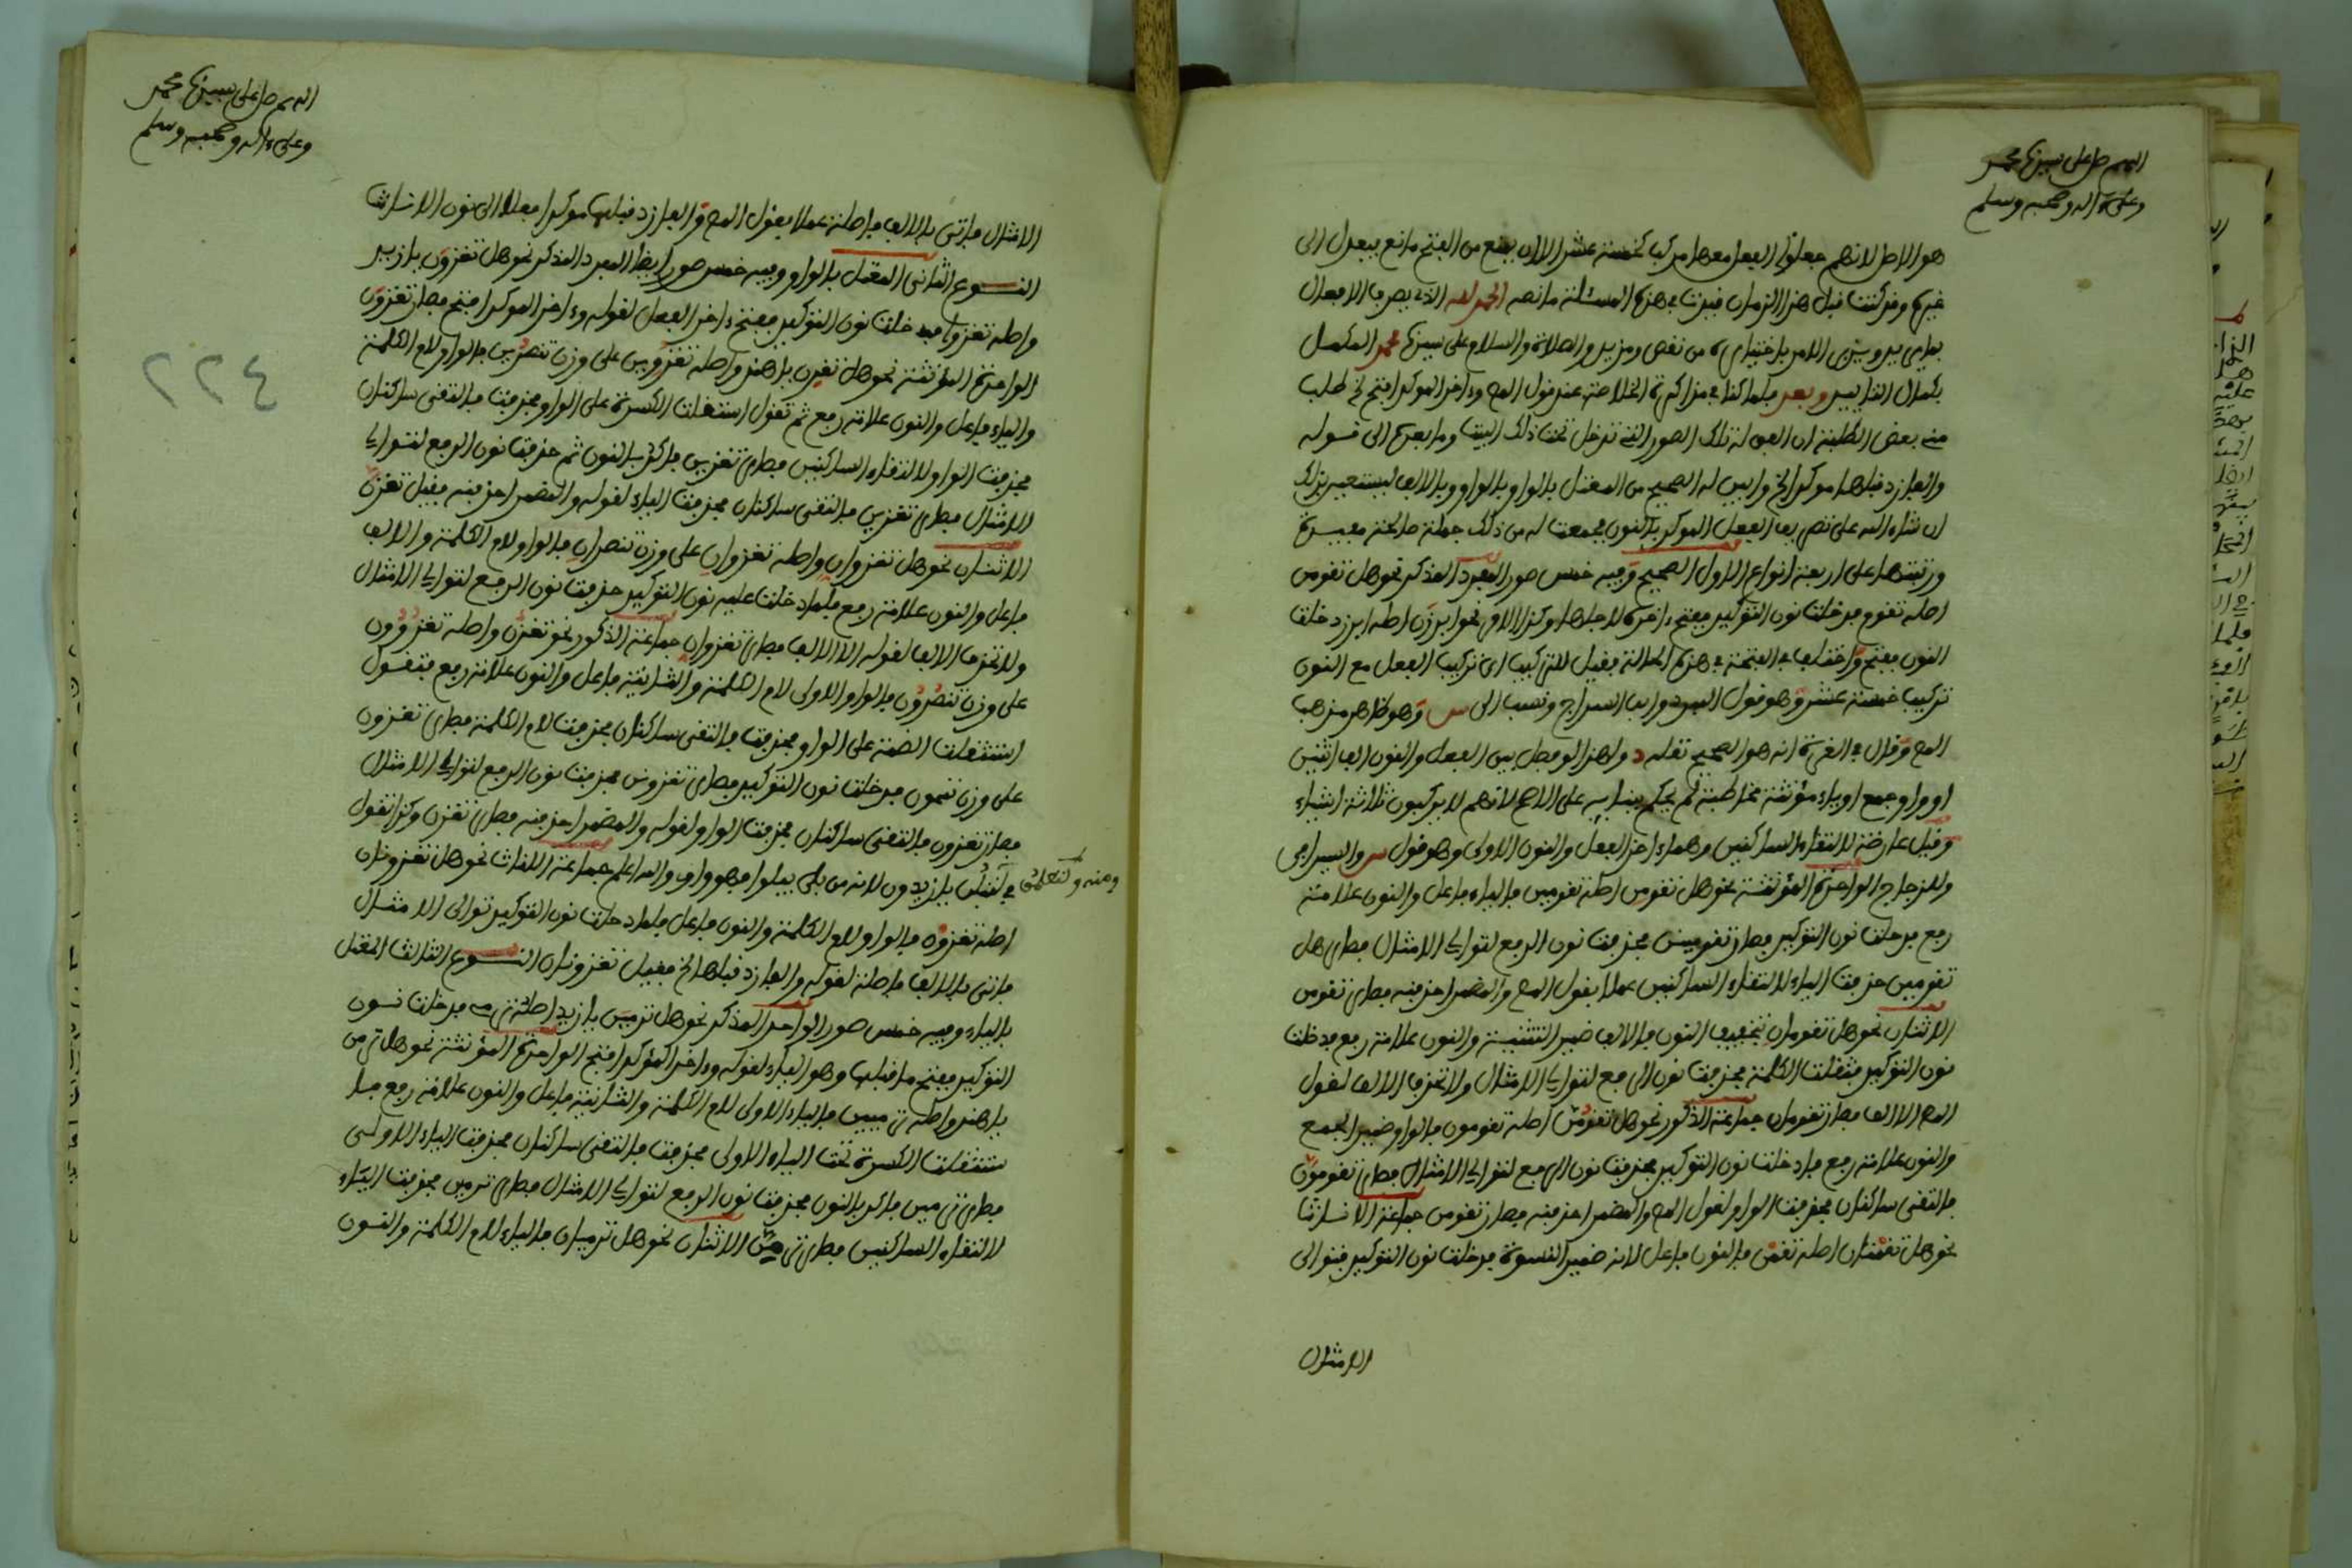 اللهم صل على سيدنا محمد
وعلى آله وصحبه وسلم
هو الاصل لانهم جعلوا الفعل معها مركبا كخمسة عشر الا ان يمنع من الفتح مانع فيعدل الى
غيره وقد كنت قبل هذا الزمان قيدت في هذه المسئلة ما نصه الحمد لله الذي يصرف الافعال
من نقص ومزيد والصلاة والسلام على سيدنا محمد المكمل
بكمال وبعد فلما كنا في مذاكرة الخلاصة عند قول المص وءاخر الموكد افتح الخ طلب
مني بعض الطلبة ان له تلك الصور التي تدخل تحت ذلك البيت وما بعده الى قوله
والفا زد قبلها موكدا الخ وابين له الصحيح من المعتل بالواو وبالياء وبالالف ليستعين بذلك
ان شاء الله على تصريف الفعل الموكد بالنون فجمعت له من ذلك جملة صالحة مفيدة
ورتبتها على اربعة انواع الاول الصحيح وفيه خمس صور المفرد المذكر نحو هل تقومن
اصله تقوم فدخلت نون التوكيد ففتح ءاخره لاجلها وكذا الامر نحو ابرزن اصله ابرز دخلت
النون ففتح واختلف في الفتحة في هذه الحالة فقيل للتركيب اي تركيب الفعل مع النون
تركيب خمسة عشر وهو قول المبرد وابن السراج ونسب الى س وهو ظاهر مذهب
المص وقال في الغرة انه هو الصحيح نقله د ولهذا لو فصل بين الفعل والنون الف اثنين
او واو جمع او ياء مؤنثة مخاطبة لم يحكم ببنائه على الاصح لانهم لا يركبون ثلاثة اشياء
وقيل عارضة لالتقاء الساكنين وهما ءاخر الفعل والنون الاولى وهو قول س والسيرافي
والزجاج الواحدة المؤنثة نحو هل تقومن اصله تقومين فالياء فاعل والنون علامة
رفع فدخلت نون التوكيد فصار تقومينن فحذفت نون الرفع لتوالي الامثال فصار هل
تقومين حذفت الياء لالتقاء الساكنين عملا بقول المص والمضمر احذفنه فصار تقومن
الاثنان نحو هل تقومان بتخفيف النون فالالف ضمير التثنية والنون علامة رفع فدخلت
نون التوكيد فثقلت الكلمة فحذفت نون الرفع لتوالي الامثال ولا تحذف الالف لقول
المص الا الالف فصار تقومان جماعة الذكور نحو هل تقومن اصله تقومون فالواو ضمير الجمع
والنون علامة رفع فادخلت نون التوكيد فحذفت نون الرفع لتوالي الامثال فصار تقومون
فالتقى ساكنان فحذفت الواو لقول المص والمضمر احذفنه فصار تقومن جماعة الاناث
نحو هل تقمنان اصله تقمن فالنون فاعل لانه ضمير النسوة فدخلت نون التوكيد فتوالى
الامثال
اللهم صل على سيدنا محمد
وعلى ءاله وصحبه وسلم
٢٢٤
الامثال فاتى بالالف فاصلة عملا بقول المص والفا زد قبلها موكدا فعلا الى نون الاناث
النوع الثاني المعتل بالواو وفيه خمس صور ايضا المفرد المذكر نحو هل تغزون يا زيد
واصله تغزو فدخلت نون التوكيد ففتح ءاخر الفعل لقوله وءاخر الموكد افتح فصار تغزون
الواحدة المؤنثة نحو هل تغزن يا هند واصله تغزوين على وزن تنصرين فالواو لام الكلمة
والياء فاعل والنون علامة رفع ثم تقول استثقلت الكسرة على الواو فحذفت فالتقى ساكنان
فحذفت الواو لالتقاء الساكنين فصار تغزين فاكد بالنون ثم حذفت نون الرفع لتوالي
الامثال فصار تغزين فالتقى ساكنان فحذفت الياء لقوله والمضمر احذفنه فقيل تغزن
الاثنان نحو هل تغزوان واصله تغزوان على وزن تنصران فالواو لام الكلمة والالف
فاعل والنون علامة رفع فلما دخلت عليه نون التوكيد حذفت نون الرفع لتوالي الامثال
ولا تحذف الالف لقوله الا الالف فصار تغزوان جماعة الذكور نحو تغزن واصله تغزوون
على وزن تنصرون فالواو الاولى لام الكلمة والثانية فاعل والنون علامة رفع فتقول
استثقلت الضمة على الواو فحذفت فالتقى ساكنان فحذفت لام الكلمة فصار تغزون
على وزن تفعون فدخلت نون التوكيد فصار تغزونن فحذفت نون الرفع لتوالي الامثال
فصار تغزون فالتقى ساكنان فحذفت الواو لقوله والمضمر احذفنه فصار تغزن وكذا تقول
في لتبلن يا زيدون لانه من بلى يبلوا فهو واوي والله اعلم جماعة الاناث نحو هل تغزونان
اصله تغزون فالواو لام الكلمة والنون فاعل فلما دخلت نون التوكيد توالى الامثال
فاتى بالالف فاصلة لقوله والفا زد قبلها الخ فقيل تغزونان النوع الثالث المعتل
بالياء وفيه خمس صور الواحد المذكر نحو هل ترمين يا زيد اصله ترمي فدخلت نون
التوكيد ففتح ما قبلها وهو الياء لقوله وءاخر الموكد افتح الواحدة المؤنثة نحو هل ترمن
يا هند واصله ترميين فالياء الاولى لام الكلمة والثانية فاعل والنون علامة رفع فا
ستثقلت الكسرة تحت الياء الاولى فحذفت فالتقى ساكنان فحذفت الياء الاولى
فصار ترمين فاكد بالنون فحذفت نون الرفع لتوالي الامثال فصار ترمين فحذفت الياء
لالتقاء الساكنين فصار ترمن الاثنان نحو هل ترميان فالياء لام الكلمة والنون